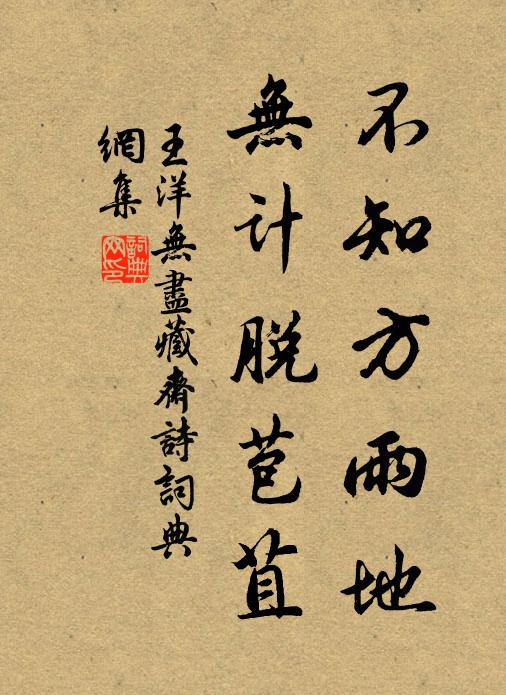 不知方雨地
無计脱苞苴
王洋無盡藏齋詩詞典
網集
詞典
网印